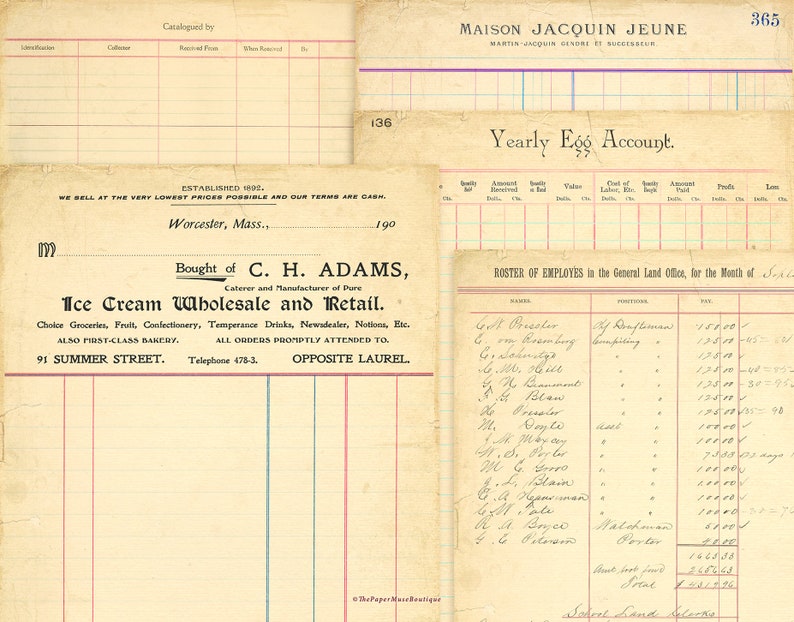 Catalogued by
Identification Collector Received From When Received By
365
MAISON JACQUIN JEUNE
MARTIN-JACQUIN GENDRE ET SUCCESSEUR.
136
Yearly Egg Account.
Quantity Sold Amount Received Quantity on Hand Value Cost of Labor, Etc. Quantity Bought Amount Paid Profit Loss
Cts. Dolls. Cts. Dolls. Cts. Dolls. Cts. Dolls. Cts. Dolls. Cts. Dolls. Cts.
ESTABLISHED 1892.
WE SELL AT THE VERY LOWEST PRICES POSSIBLE AND OUR TERMS ARE CASH.
Worcester, Mass., 190
M
Bought of C. H. ADAMS,
Caterer and Manufacturer of Pure
Ice Cream Wholesale and Retail.
Choice Groceries, Fruit, Confectionery, Temperance Drinks, Newsdealer, Notions, Etc.
ALSO FIRST-CLASS BAKERY. ALL ORDERS PROMPTLY ATTENDED TO.
91 SUMMER STREET. Telephone 478-3. OPPOSITE LAUREL.
ROSTER OF EMPLOYES in the General Land Office, for the Month of
NAMES. POSITIONS. PAY.
C. W. Pressler Draftsman 150.00 ✓
E. von Rosenberg Compiling " 125.00
125.00 ✓
C. M. Hill " " 125.00
G. N. Beaumont " " 125.00
F. G. Blau " " 125.00 ✓
H. Pressler " " 125.00
M. Doyle Asst " 100.00 ✓
J. N. Maxcey " " 100.00 ✓
W. S. Porter " " 73.33
M. C. Gross " " 100.00 ✓
J. L. Blain " " 100.00 ✓
E. A. " " 100.00 ✓
C. W. Tate " " 100.00
R. A. Boyce Watchman 50.00 ✓
G. C. Peterson Porter 40.00
1663.33
2656.63
Total $4319.96
School Land Clerks
©ThePaperMuseBoutique